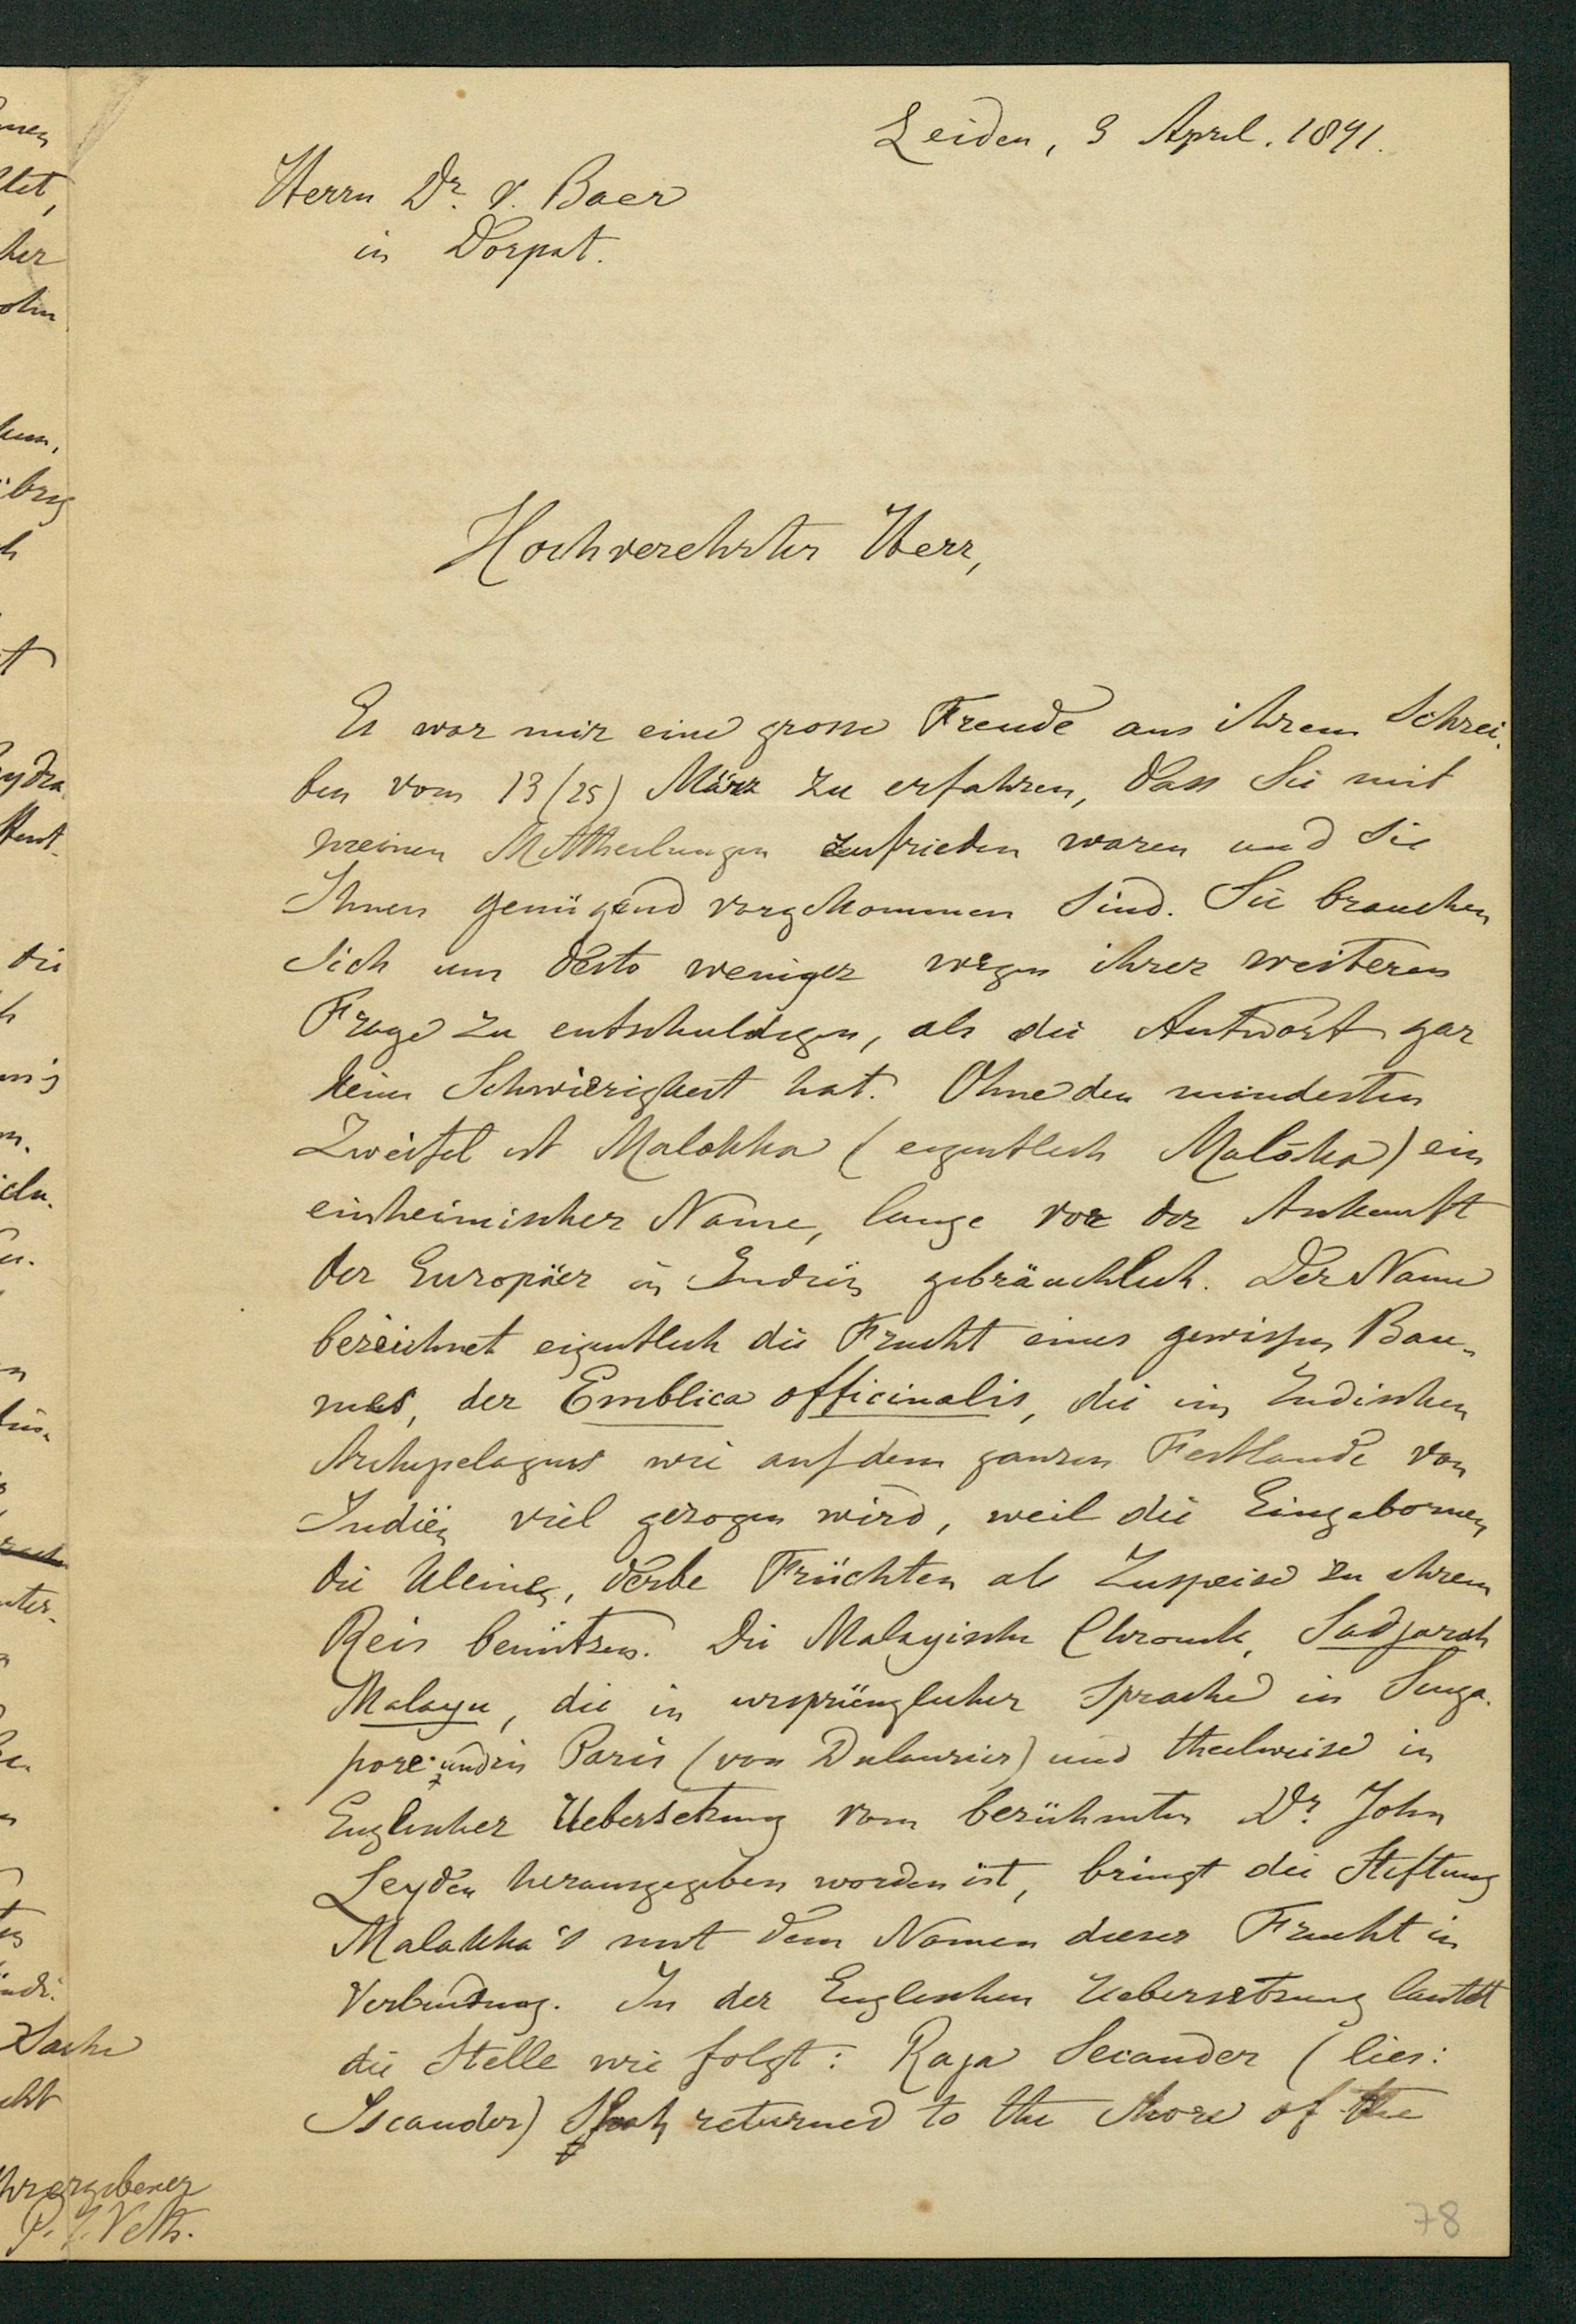 Leiden, 3 April. 1891.
Herrn Dr. v. Baer
in Dorpat.
Hochverehrter Herr,
Es war mir eine grosse Freude aus ihrem Schrei-
ben vom 13/25) März zu erfahren, dass Sie mit
meinen Mittheilungen zufrieden waren und Sie
Ihnen genügend vorgekommen sind. Sie brauchen
sich um desto weniger wegen ihrer weiteren
Frage zu entschuldigen, als die Antwort gar
keine Schwierigkeit hat. Ohne den mindesten
Zweifel ist Malakka (eigentlich Malāka) ein
einheimischer Name, lange vor der Ankunft
der Europäer in Indiën gebräuchlich. Der Name
bezeichnet eigentlich die Frucht eines gewissen Bau-
mes, der Emblica officinalis, die im Indischen
Archipelagus wie auf dem ganzen Festlande von
Indiën viel gezogen wird, weil die Eingebornen
die kleinen, derbe Früchten als Zuspeise zu ihrem
Reis benützen. Die Malayische Chronik, Sadjarah
Malayu, die in ursprünglicher Sprache in Singa-
pore und in Paris (von Dulaurier) und theilweise in
Englischer Uebersetzung vom berühmten Dr. John
Leyden herausgegeben worden ist, bringt die Stiftung
Malakka's mit dem Namen dieser Frucht in
Verbindung. In der Englischen Uebersetzung lautet
die Stelle wie folgt: Raja Secander (lies:
Iscander) Shah returned to the shore of the
78
ybrig
ydra
die
Sache
ergebener
P. J. Veth.